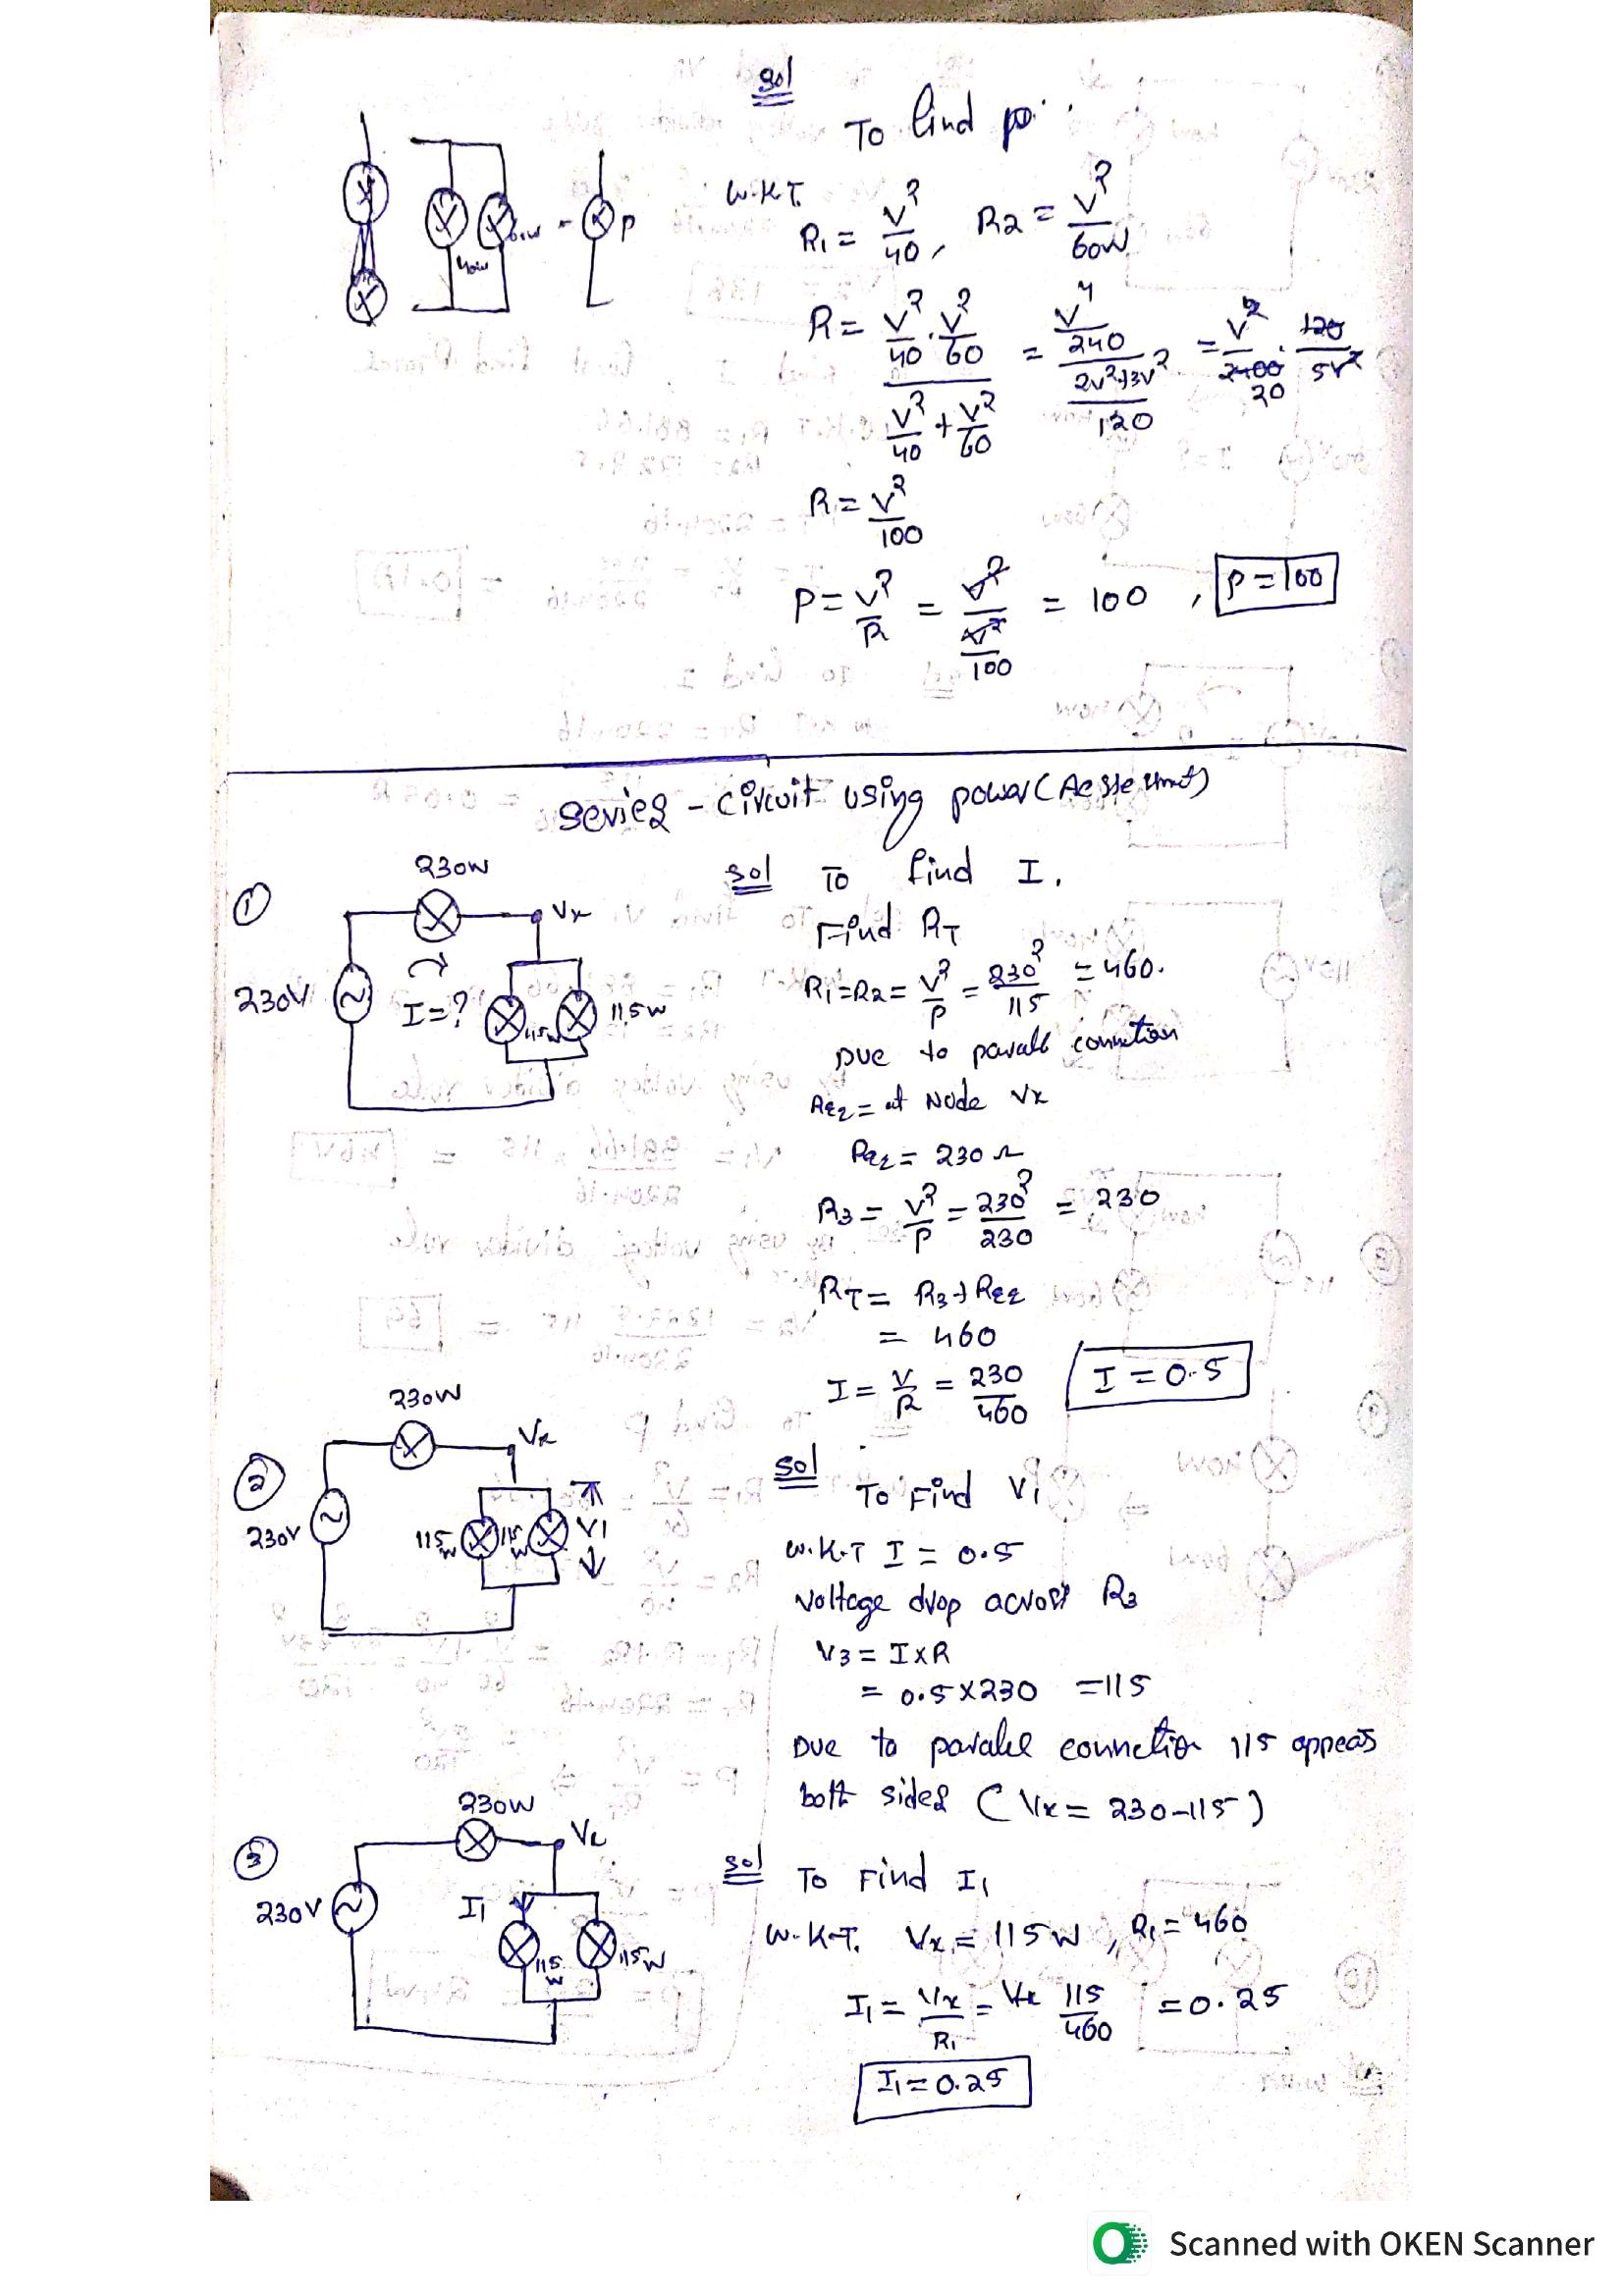 Sol
To find P.
40W 60W = P
W.K.T.
R1 = V²/40, R2 = V²/60W
R = (V²/40 . V²/60) / (V²/40 + V²/60) = (V⁴/240) / ((2V²+3V²)/120) = V²/2400 . 120/5V²
20
R = V²/100
P = V²/R = V²/(V²/100) = 100 , P = 100
Series - Circuit using power (Assessment)
① 230W
Vx
230V
I=?
115W
115W
Sol To find I.
Find RT
R1=R2= V²/P = 230²/115 = 460.
Due to parall connection
Req = at Node Vx
Req = 230 Ω
R3 = V²/P = 230²/230 = 230
RT = R3+Req
= 460
I = V/R = 230/460 I = 0.5
② 230W
Vx
230V
115W
115W
V1
Sol To Find V1
W.K.T I = 0.5
Voltage drop across R3
V3 = I×R
= 0.5×230 =115
Due to paralel connection 115 appears
both sides (Vx = 230-115)
③ 230W
Vx
230V
I1
115W
115W
Sol To Find I1
W.K.T. Vx = 115W, R1 = 460
I1 = Vx/R1 = 115/460 = 0.25
I1 = 0.25
Scanned with OKEN Scanner